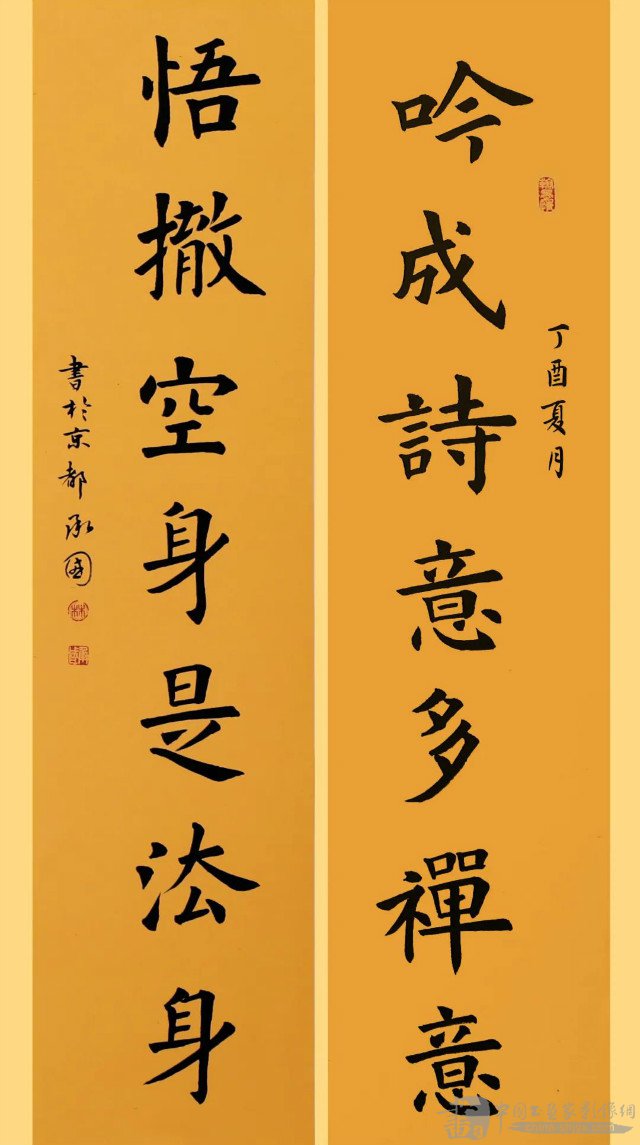 吟成詩意多禪意
丁酉夏月
悟撤空身是法身
書於京都承國